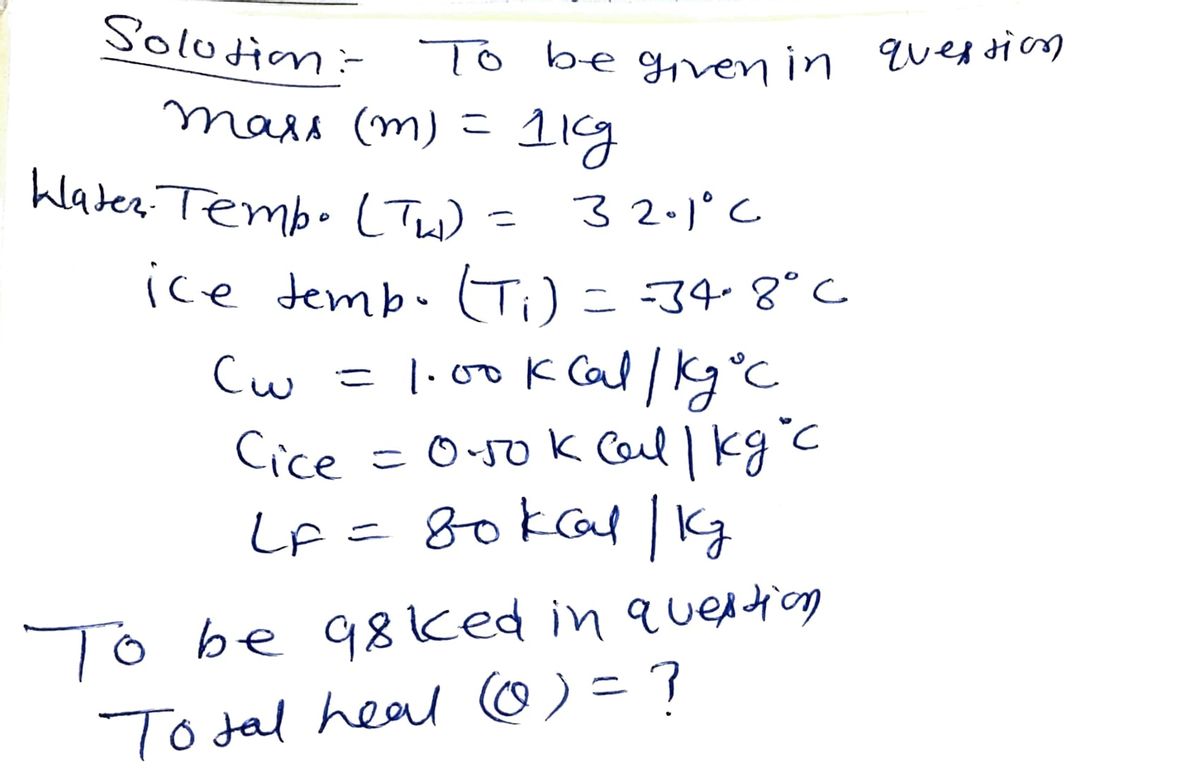 Solution :- To be given in question
mass (m) = 1kg
Water Temp. (Tw) = 32.1°C
ice temp. (Ti) = -34.8°C
Cw = 1.00 K Cal / kg°C
Cice = 0.50 K Cal / kg°C
LF = 80 kcal / kg
To be asked in question
Total heat (Q) = ?